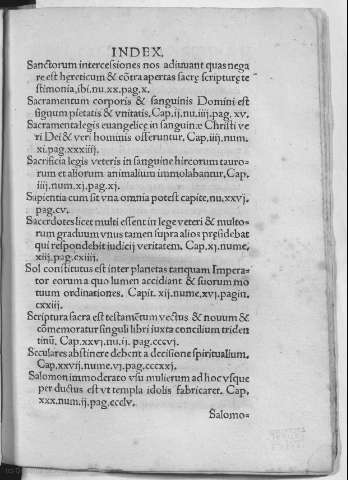 INDEX.
Sanctorum intercessiones nos adiuuant quas nega
re est hereticum & cõtra apertas sacrę scripturę te
stimonia, ibi. nu. xx. pag. x.
Sacramentum corporis & sanguinis Domini est
signum pietatis & vnitatis, Cap. ij. nu. iiij. pag. xv.
Sacramenta legis euangelicę in sanguinæ Christi ve
ri Dei & veri hominis offeruntur. Cap. iiij. num.
xi. pag. xxxiij.
Sacrificia legis veteris in sanguine hircorum tauro-
rum et aliorum animalium immolabantur, Cap.
iiij. num. xj. pag. xj.
Sapientia cum sit vna omnia potest capite, nu. xxvj.
pag. cv.
Sacerdotes licet multi essent in lege veteri & multo-
rum graduum vnus tamen supra alios pręsidebat
qui respondebit iudicij veritatem. Cap. xj. nume,
xiij. pag. cxiiij.
Sol constitutus est inter planetas tanquam Impera-
tor eorum a quo lumen accidiant & suorum mo
tuum ordinationes. Capit. xij. nume, xvj. pagin.
cxxiij.
Scriptura sacra est testamẽtum vectus & nouum &
cõmemoratur singuli libri iuxta concilium triden
tinũ. Cap. xxvj. nu. ij. pag. cccvj.
Seculares abstinere debent a decisione spiritualium.
Cap. xxvij. nume. vj. pag. cccxxj.
Salomon immoderato vsu mulierum ad hoc vsque
per ductus est vt templa idolis fabricaret. Cap,
xxx. num. ij. pag. ccclv.
Salomo-